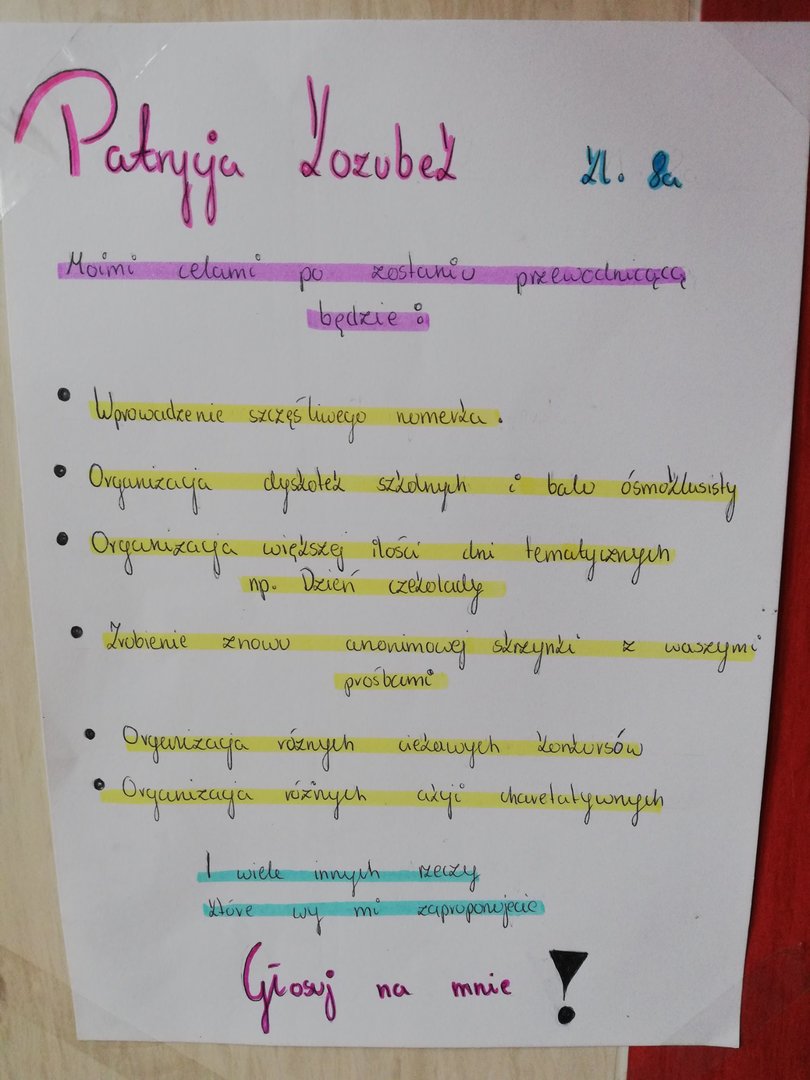 Patrycja Kozubek kl. 8a
Moimi celami po zostaniu przewodniczącą
będzie :
• Wprowadzenie szczęśliwego numerka.
• Organizacja dyskotek szkolnych i balu ósmoklasisty
• Organizacja większej ilości dni tematycznych
np. Dzień czekolady
• Zrobienie znowu anonimowej skrzynki z waszymi
prośbami
• Organizacja różnych ciekawych konkursów
• Organizacja różnych akcji charetatywnych
I wiele innych rzeczy
które wy mi zaproponujecie
Głosuj na mnie !